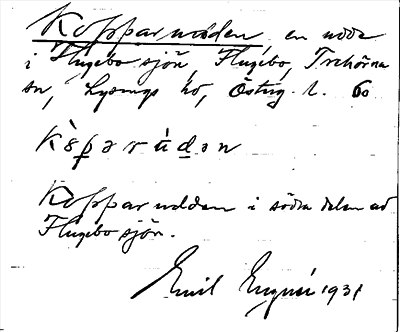 Kopparudden en udde
i Flugebosjön Flugebo, Trehörna
sn, Lysings hd, Östrg. l. 60
Kopparudden i södra delen av
Flugebosjön.
Emil 1931